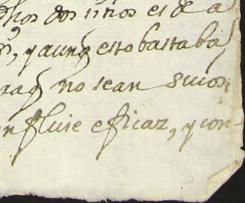 dos niños es de a
y aunq esto bastaba
no sean suios
influie eficaz, y con-